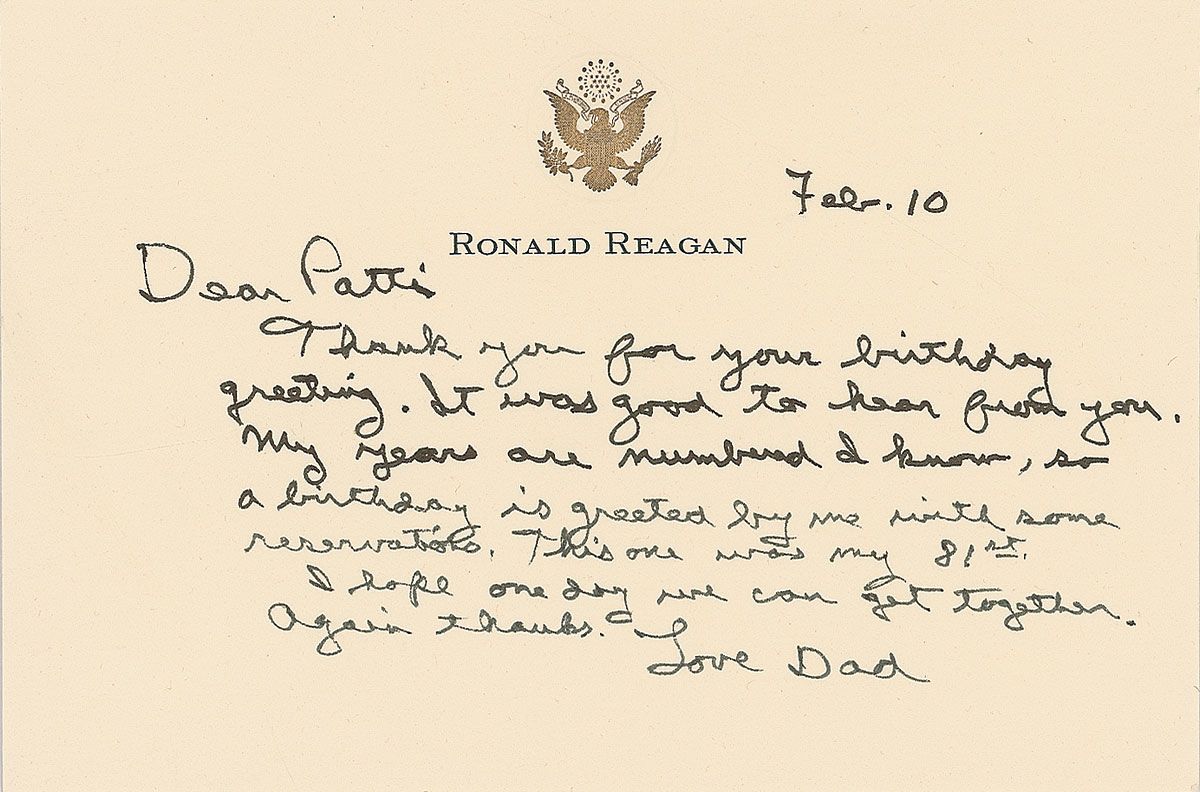 Febr. 10
RONALD REAGAN
Dear Patti
Thank you for your birthday
greeting. It was good to hear from you.
My years are numbered I know, so
a birthday is greeted by me with some
reservations. This one was my 81st.
I hope one day we can get together.
Again thanks. Love Dad